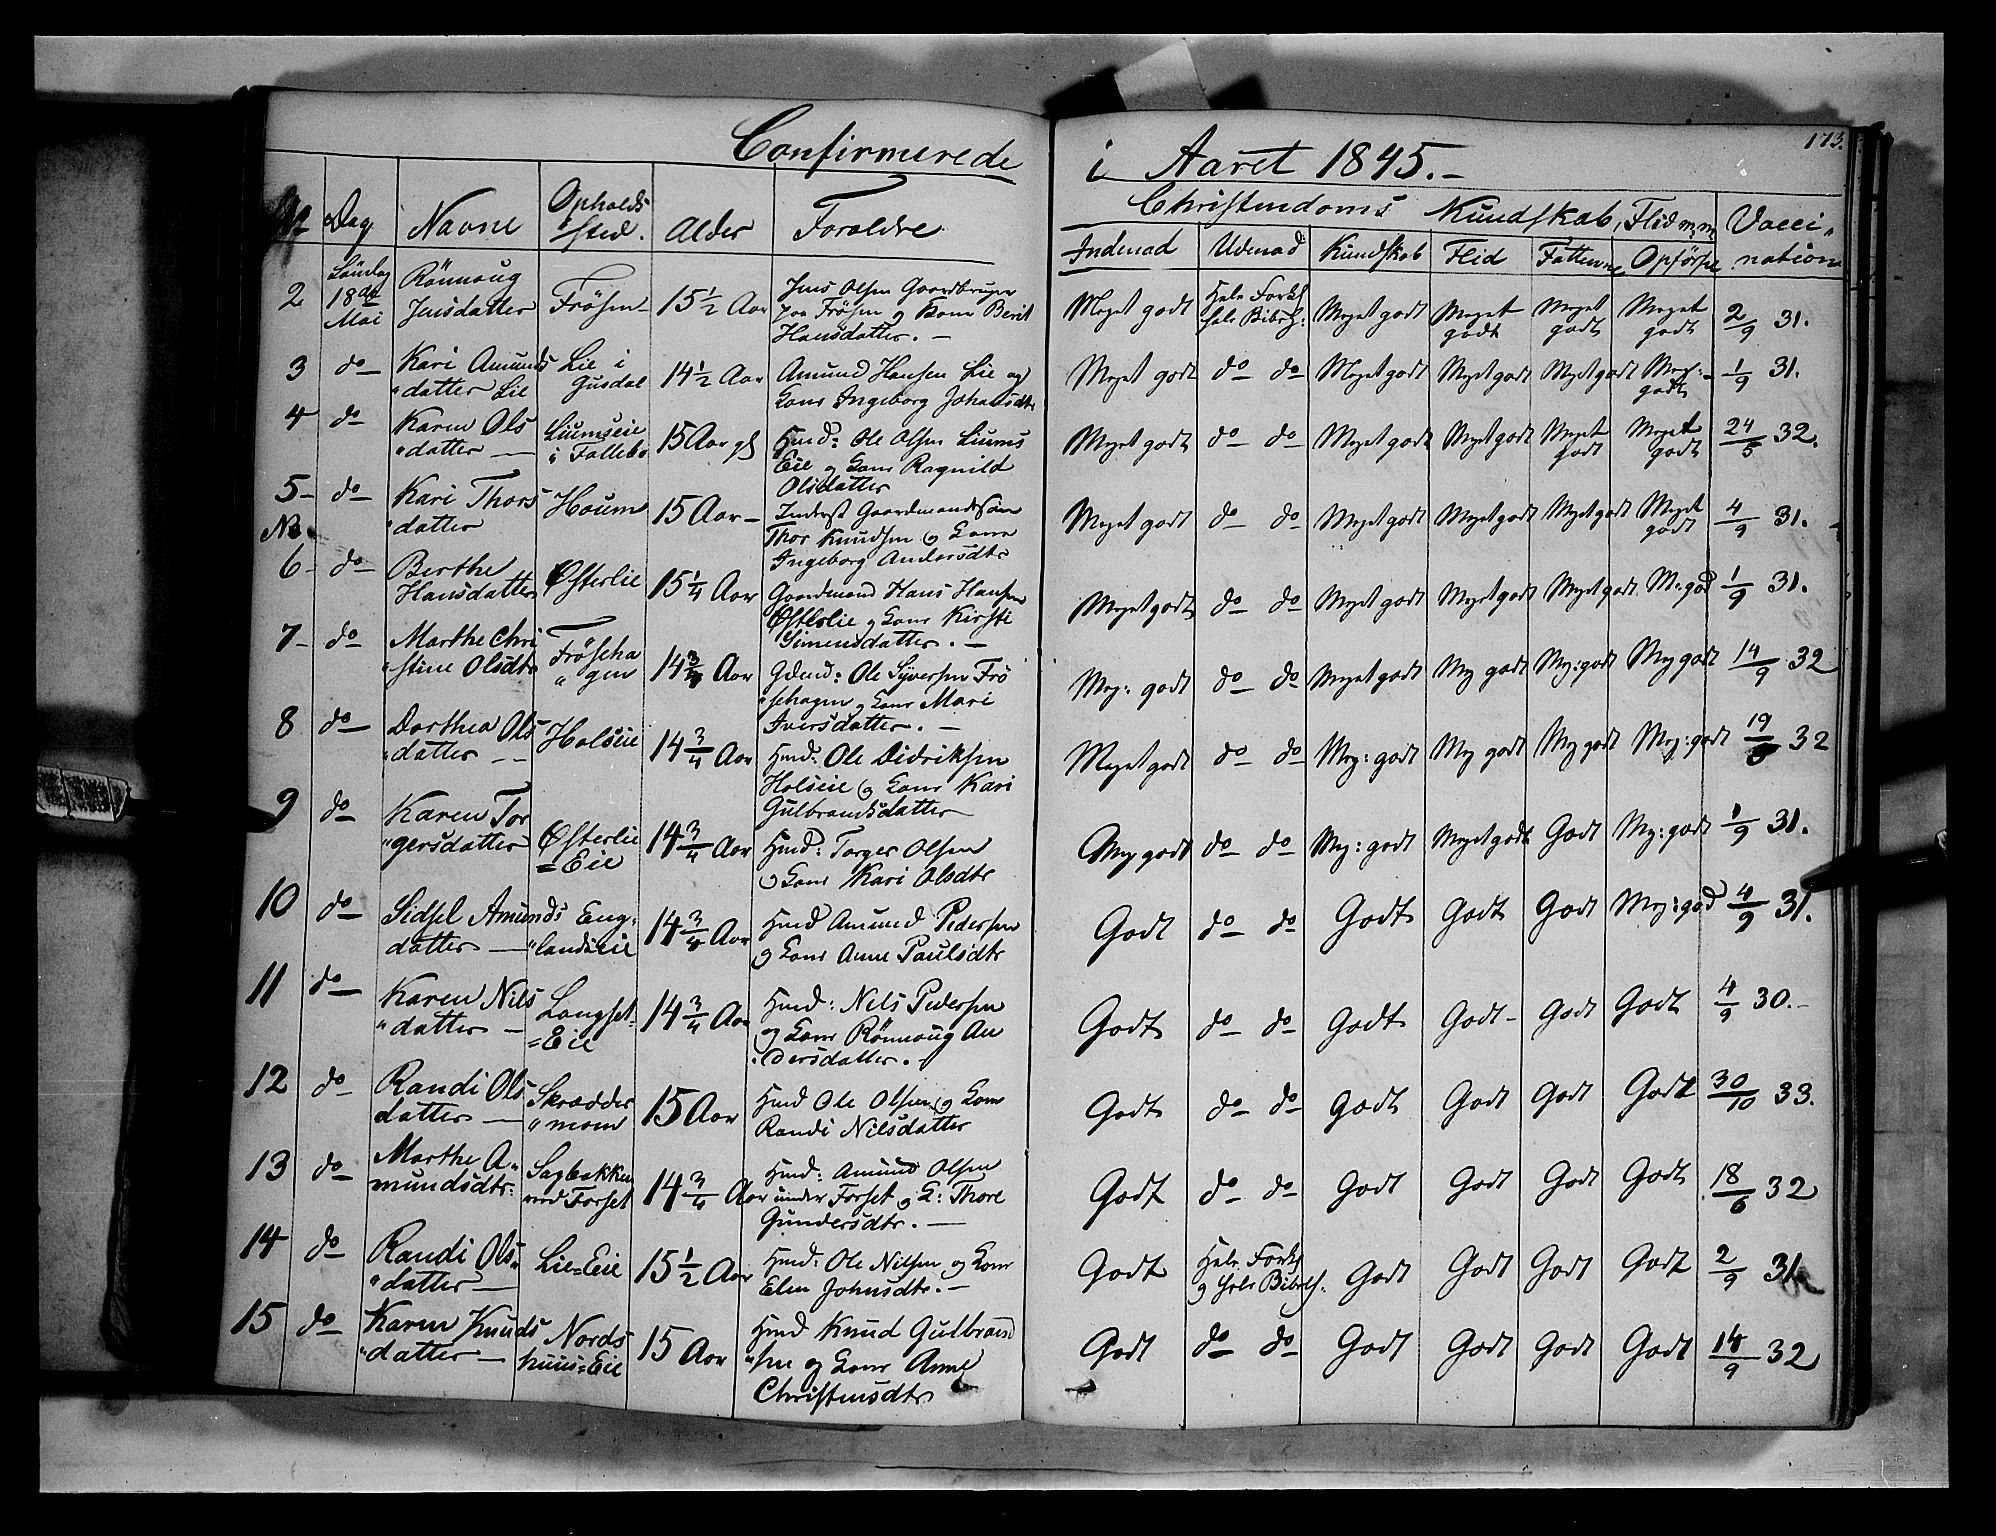 Confirmerede i Aaret 1845.-
173.
No Dag Navne Opholds sted. Alder Foroldre
Christendoms Kundskab, Flid m.m. Vacci-
Indenad Udenad Kundskab Flid Fatteevne Opførsel nation
2 Søndag 18de Mai Rönnoug Jensdatter Frösen 15 1/2 Aar Jens Olsen Gaardbruger paa Frösen og Kone Berit Hansdatter. - Meget godt Hele Forkl hele Bibelh: Meget godt Meget godt Meget godt Meget godt 2/9 31.
3 do Kari Amunds datter Lie Lie i Gusdal 14 1/2 Aar Amund Hansen Lie og Kone Ingeborg Johansdtr Meget godt do do Meget godt Meget godt Meget godt Meg: godt 1/9 31.
4 do Karen Ols datter Liumseie i Follebo 15 Aar gl Hmd: Ole Olsen Liums Eie og Kone Ragnild Olsdatter Meget godt do do Meget godt Meget godt Meget godt Meget godt 24/5 32.
5 do Kari Thors datter Houm 15 Aar Inderst Gaardmandssøn Thor Knudsen og Kone Ingeborg Andersdtr Meget godt do do Meget godt Meget godt Meget godt Meget godt 4/9 31.
6 do Berthe Hansdatter Østerlie 15 1/4 Aar Gaardmand Hans Hansen Østerlie og Kone Kirsti Simensdatter. - Meget godt do do Meget godt Meget godt Meget godt M: god 1/9 31.
7 do Marthe Chri stine Olsdtr Fröseha gen 14 3/4 Aar Gdmd: Ole Syversen Frö sehagen og Kone Mari Iversdatter. - Meg: godt do do Meget godt Meg godt Meg: godt Meg godt 14/9 32
8 do Dorthea Ols datter Holseie 14 3/4 Aar Hmd: Ole Didriksen Holseie og Kone Kari Gulbrandsdatter Meget godt do do Meg: godt Meg godt Meg godt Meg: godt 19/6 32
9 do Karen Tor gersdatter Østerlie =Eie 14 3/4 Aar Hmd: Torger Olsen og Kone Kari Olsdtr Meg godt do do Meg: godt Meget godt Godt Meg: godt 1/9 31.
10 do Sidsel Amunds datter Eng- landseie 14 3/4 Aar Hmd Amund Pedersen og Kone Anne Paulsdtr Godt do do Godt Godt Godt Meg: god 4/9 31.
11 do Karen Nils datter Longset =Eie 14 3/4 Aar Hmd: Nils Pedersen og Kone Rönnoug An dersdatter. Godt do do Godt Godt Godt Godt 4/9 30.-
12 do Randi Ols datter Skrædder moen 15 Aar Hmd Ole Olsen og Kone Randi Nilsdatter Godt do do Godt Godt Godt Godt 30/10 33.
13 do Marthe A- mundsdtr: Sagbakken ved Forset 14 3/4 Aar Hmd: Amund Olsen under Forset og K: Thore Gundersdtr. - Godt do do Godt Godt Godt Godt 18/6 32
14 do Randi Ols datter Lie=Eie 15 1/2 Aar Hmd: Ole Nilsen og Kone Elen Johnsdtr. - Godt Hele Forkl og hele Bibelh. Godt Godt Godt Godt 2/9 31
15 do Karen Knuds datter Nords huus=Eie 15 Aar Hmd Knud Gulbrand sen og Kone Anne Christensdtr Godt do do Godt Godt Godt Godt 14/9 32